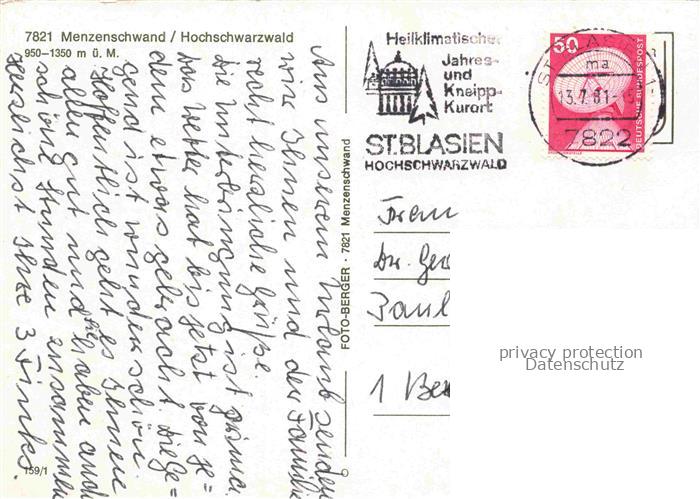 7821 Menzenschwand / Hochschwarzwald
950–1350 m ü. M.
Aus unserem Urlaub senden
wir Ihnen und der Familie
recht herzliche Grüße.
Die Unterbringung ist prima.
Das Wetter hat bis jetzt von je=
dem etwas gebracht. Die Ge=
gend ist wunderschön.
Hoffentlich geht es Ihnen
allen gut und Sie haben auch
schöne Stunden zusammen
Herzlichst Ihre 3 Finks.
159/1
FOTO-BERGER · 7821 Menzenschwand
Heilklimatischer
Jahres-
und
Kneipp-
Kurort
ST.BLASIEN
HOCHSCHWARZWALD
50
DEUTSCHE BUNDESPOST
ST. BLASIEN 1
ma
13.7.81-
7822
Frau
Dr. Ger
Paul
1 Ber
privacy protection
Datenschutz